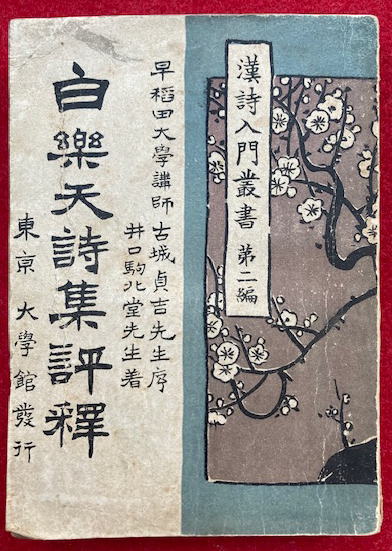 漢詩入門叢書 第二編
早稻田大學講師 古城貞吉先生序
井口駒北堂先生著
白樂天詩集評釋
東京 大學館發行